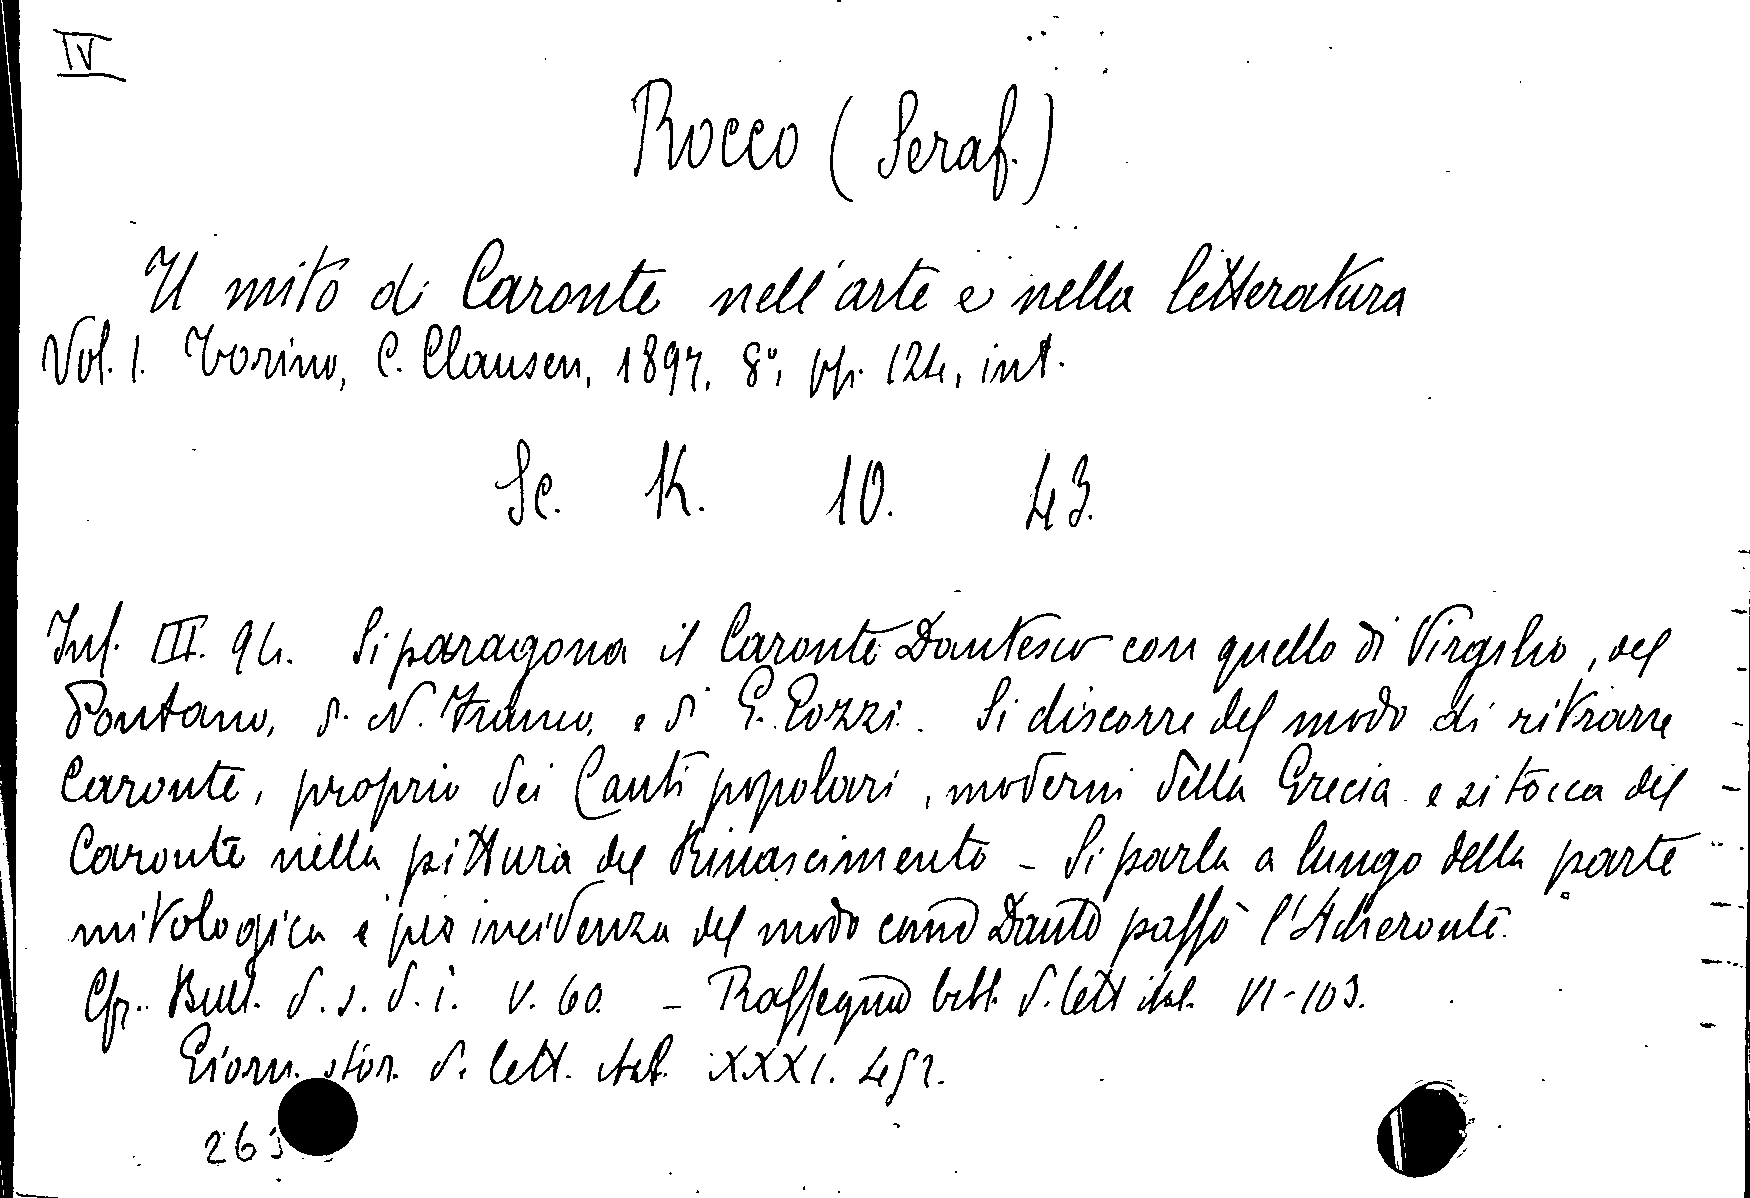 IV
Rocco (Seraf.)
Il mito di Caronte nell'arte e nella letteratura
Vol. 1. Torino, C. Clausen, 1897, 8°, pp. 124, int.
Sc. K. 10. 43.
Inf. III. 94. Si paragona il Caronte Dantesco con quello di Virgilio, del
Pontano, d. N. Franco, e di G. Gozzi. Si discorre del modo di ritrarre
Caronte, proprio dei Canti popolari, moderni della Grecia e si tocca del
Caronte nella pittura del Rinascimento - Si parla a lungo della parte
mitologica e per incidenza del modo come Dante passò l'Acheronte.
Cfr. Bull. d. s. d. i. V. 60. - Rassegna bibl. d. lett ital. VI-103.
Giorn. stor. d. lett. ital. XXXI. 452.
263